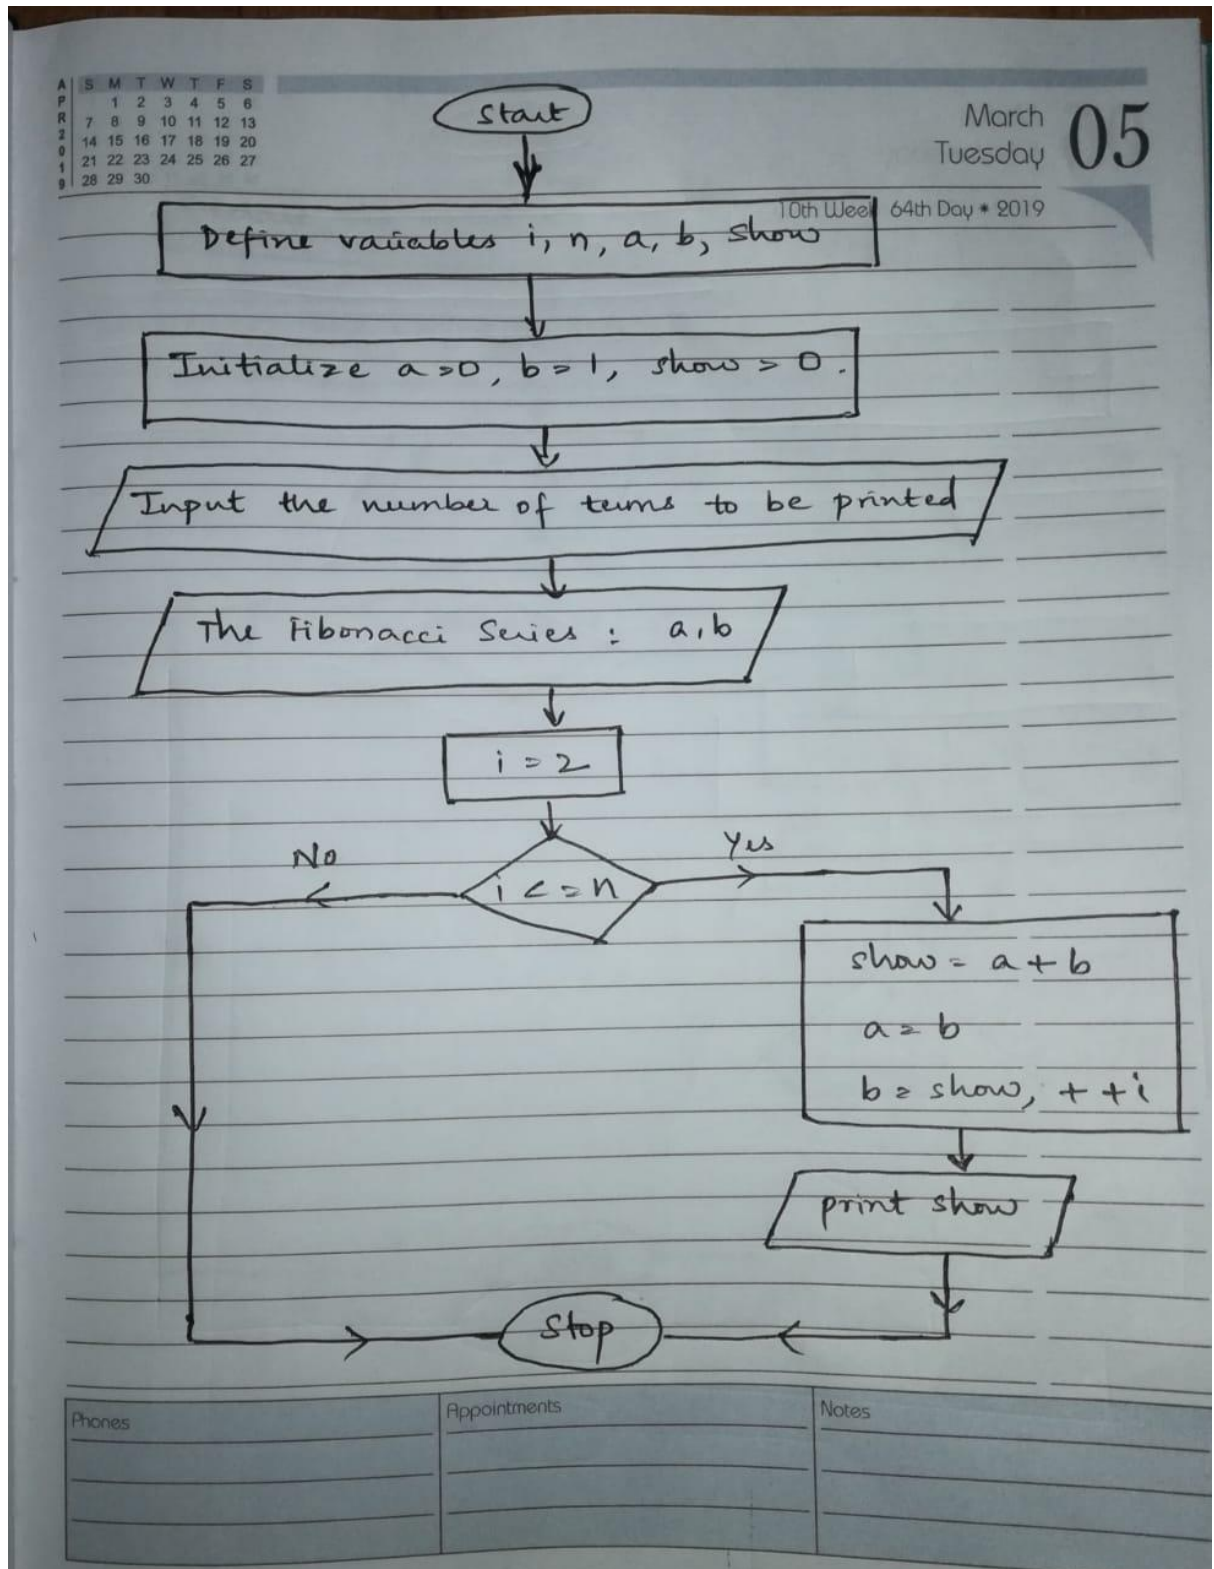 A P R 2 0 1 9
S M T W T F S
1 2 3 4 5 6
7 8 9 10 11 12 13
14 15 16 17 18 19 20
21 22 23 24 25 26 27
28 29 30
March
Tuesday
05
10th Week 64th Day • 2019
Start
Define variables i, n, a, b, show
Initialize a=0, b=1, show = 0.
Input the number of terms to be printed
The Fibonacci Series : a, b
i = 2
No
i <= n
Yes
show = a + b
a = b
b = show, ++i
print show
Stop
Phones
Appointments
Notes